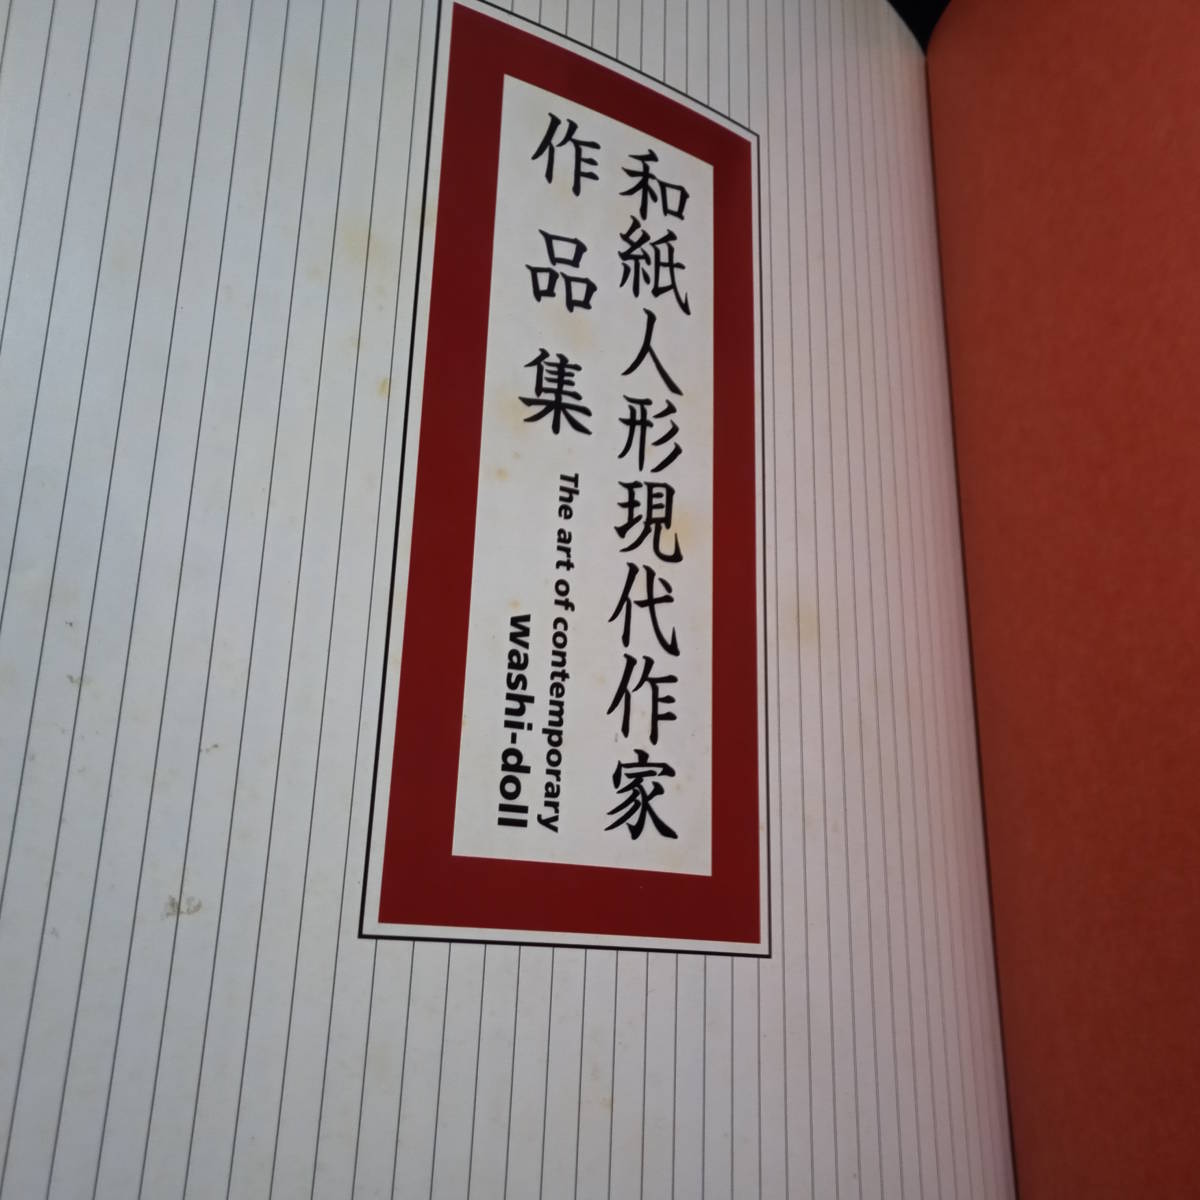 和紙人形現代作家
作品集
The art of contemporary
washi-doll